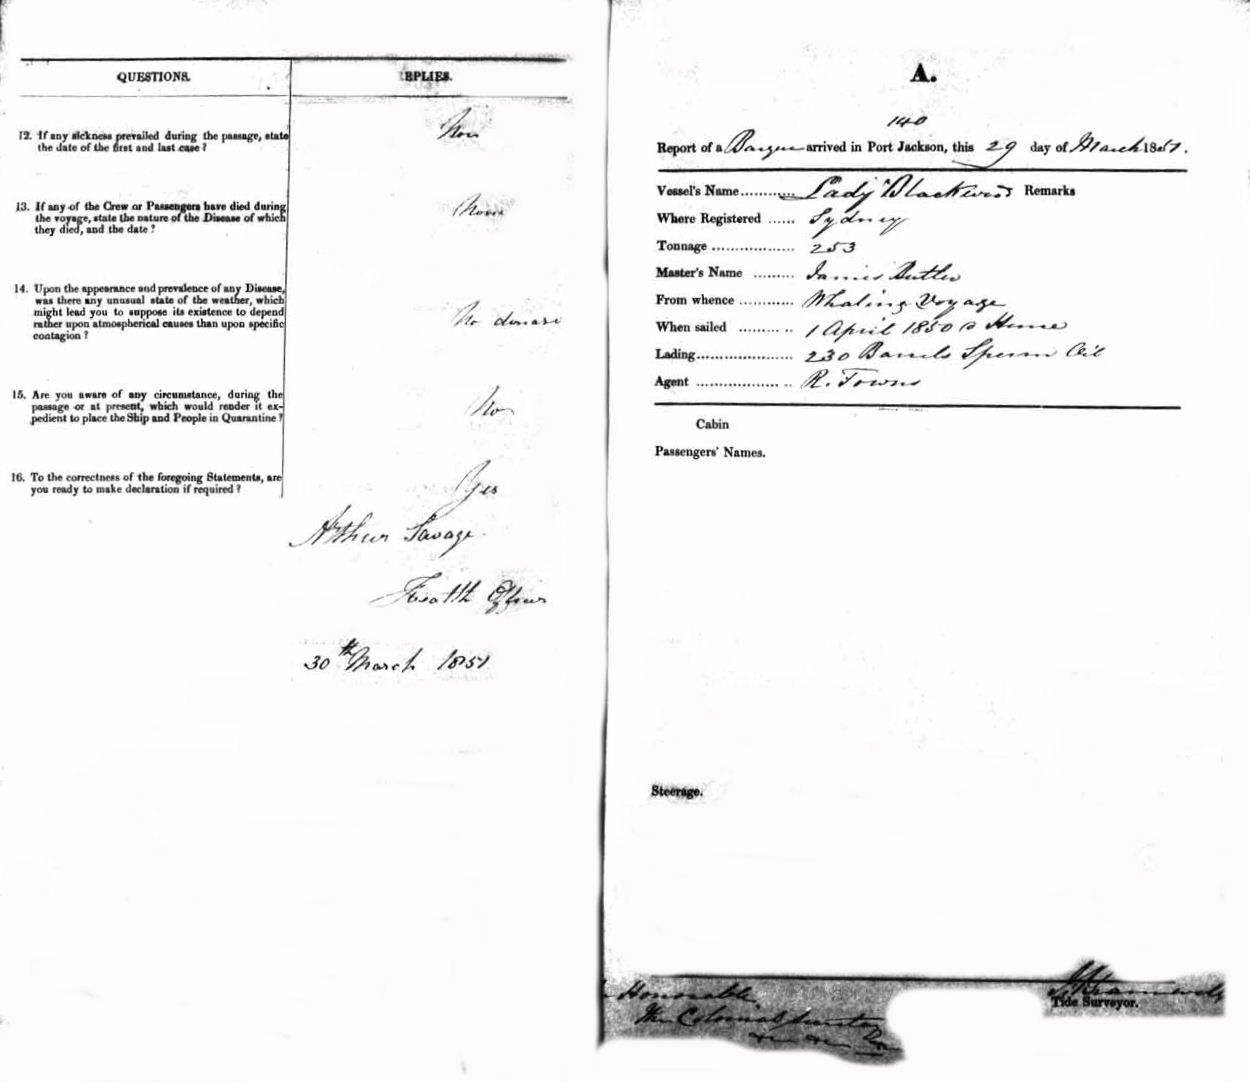 QUESTIONS.
EPLIES.
12. If any sickness prevailed during the passage, state
the date of the first and last case?
Non
13. If any of the Crew or Passengers have died during
the voyage, state the nature of the Disease of which
they died, and the date?
None
14. Upon the appearance and prevalence of any Disease,
was there any unusual state of the weather, which
might lead you to suppose its existence to depend
rather upon atmospherical causes than upon specific
contagion?
No disease
15. Are you aware of any circumstance, during the
passage or at present, which would render it ex-
pedient to place the Ship and People in Quarantine?
No
16. To the correctness of the foregoing Statements, are
you ready to make declaration if required?
Yes
Arthur Savage
Health Officer
30th March 1851
A.
140
Report of a Barque arrived in Port Jackson, this 29 day of March 1851.
Vessel's Name Lady Blackwood Remarks
Where Registered Sydney
Tonnage 253
Master's Name James Butler
From whence Whaling Voyage
When sailed 1 April 1850 Hence
Lading 230 Barrels Sperm Oil
Agent R. Towns
Cabin
Passengers' Names.
Steerage.
Honorable
The Colonial Secretary
Tide Surveyor.